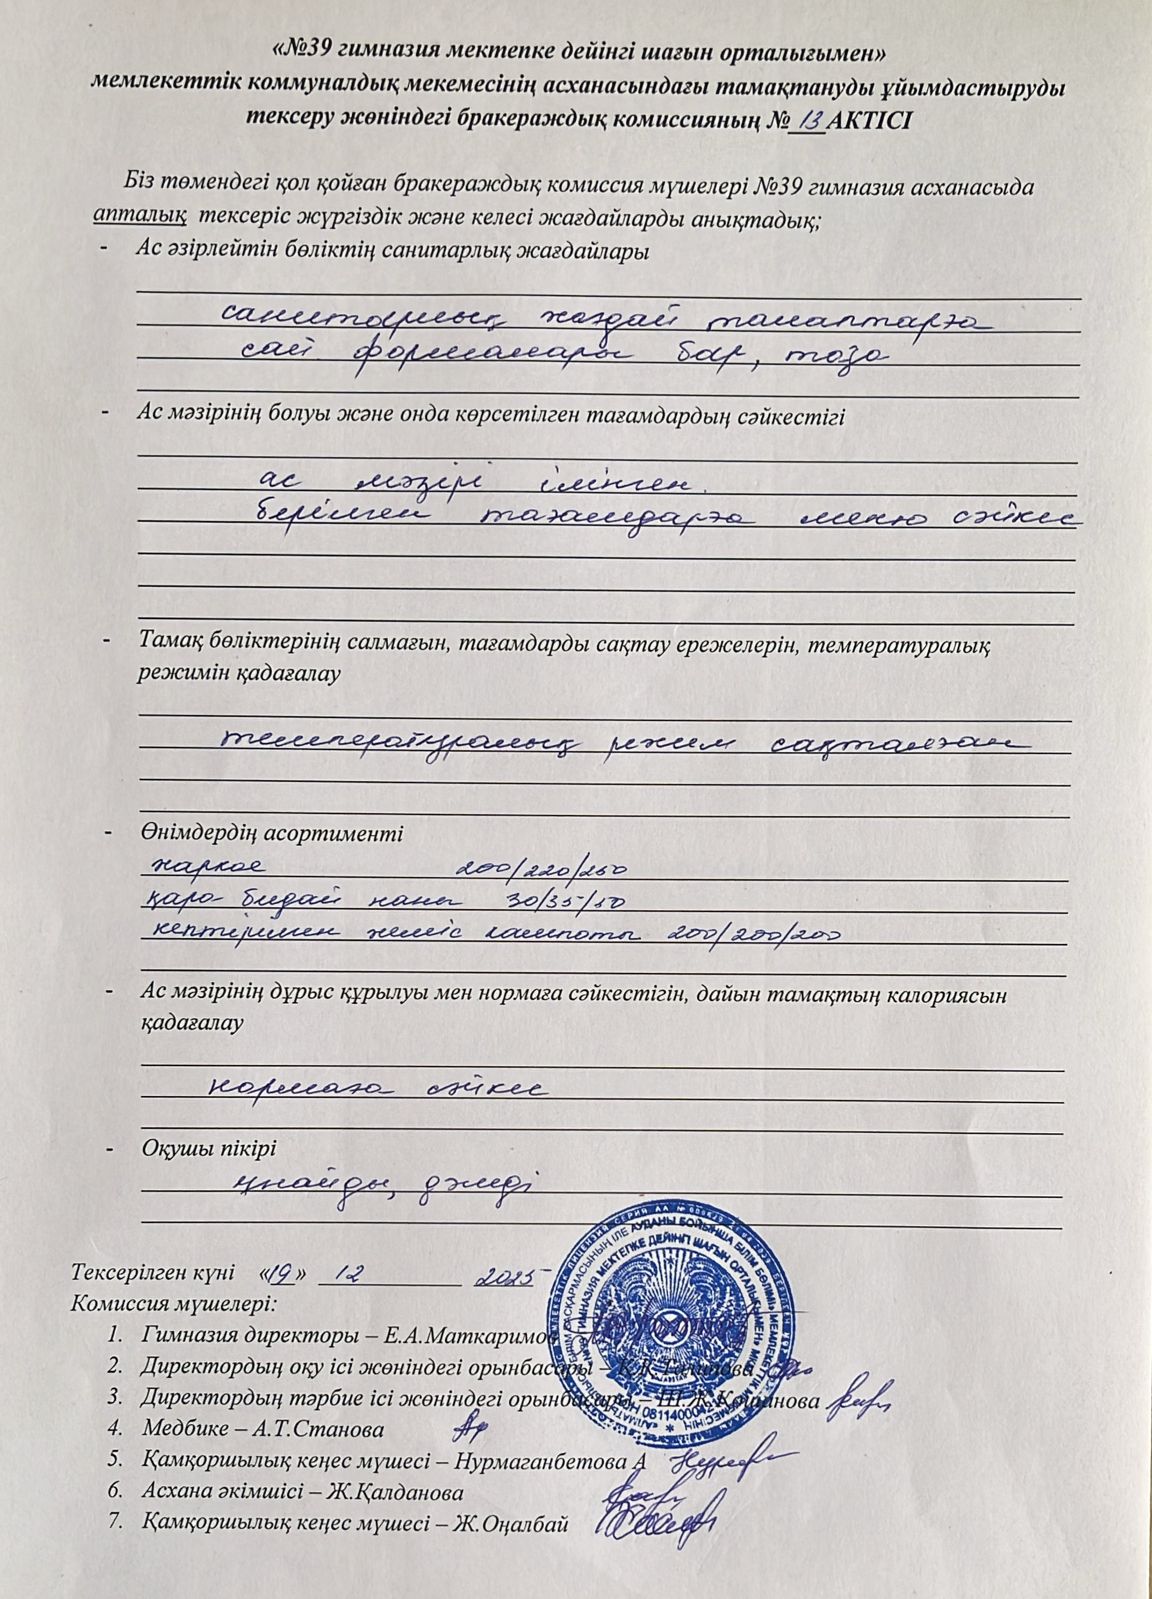 «№39 гимназия мектепке дейінгі шағын орталығымен»
мемлекеттік коммуналдық мекемесінің асханасындағы тамақтануды ұйымдастыруды
тексеру жөніндегі бракераждық комиссияның № 13 АКТІСІ
Біз төмендегі қол қойған бракераждық комиссия мүшелері №39 гимназия асханасыда
апталық тексеріс жүргіздік және келесі жағдайларды анықтадық;
- Ас әзірлейтін бөліктің санитарлық жағдайлары
санитарлық жағдай талаптарға
сай формалары бар, таза
- Ас мәзірінің болуы және онда көрсетілген тағамдардың сәйкестігі
ас мәзірі ілінген.
берілген тағамдарға меню сәйкес
- Тамақ бөліктерінің салмағын, тағамдарды сақтау ережелерін, температуралық
режимін қадағалау
температуралық режим сақталған
- Өнімдердің асортименті
жаркое 200/220/250
қара бидай наны 30/35/50
кептірілген жеміс компоты 200/200/200
- Ас мәзірінің дұрыс құрылуы мен нормаға сәйкестігін, дайын тамақтың калориясын
қадағалау
нормаға сәйкес
- Оқушы пікірі
ұнайды, дәмді
Тексерілген күні «19» 12 2025
Комиссия мүшелері:
1. Гимназия директоры – Е.А.Маткаримов
2. Директордың оқу ісі жөніндегі орынбасары –
3. Директордың тәрбие ісі жөніндегі орынбасары –
4. Медбике – А.Т.Станова
5. Қамқоршылық кеңес мүшесі – Нурмаганбетова А
6. Асхана әкімшісі – Ж.Қалданова
7. Қамқоршылық кеңес мүшесі – Ж.Оңалбай